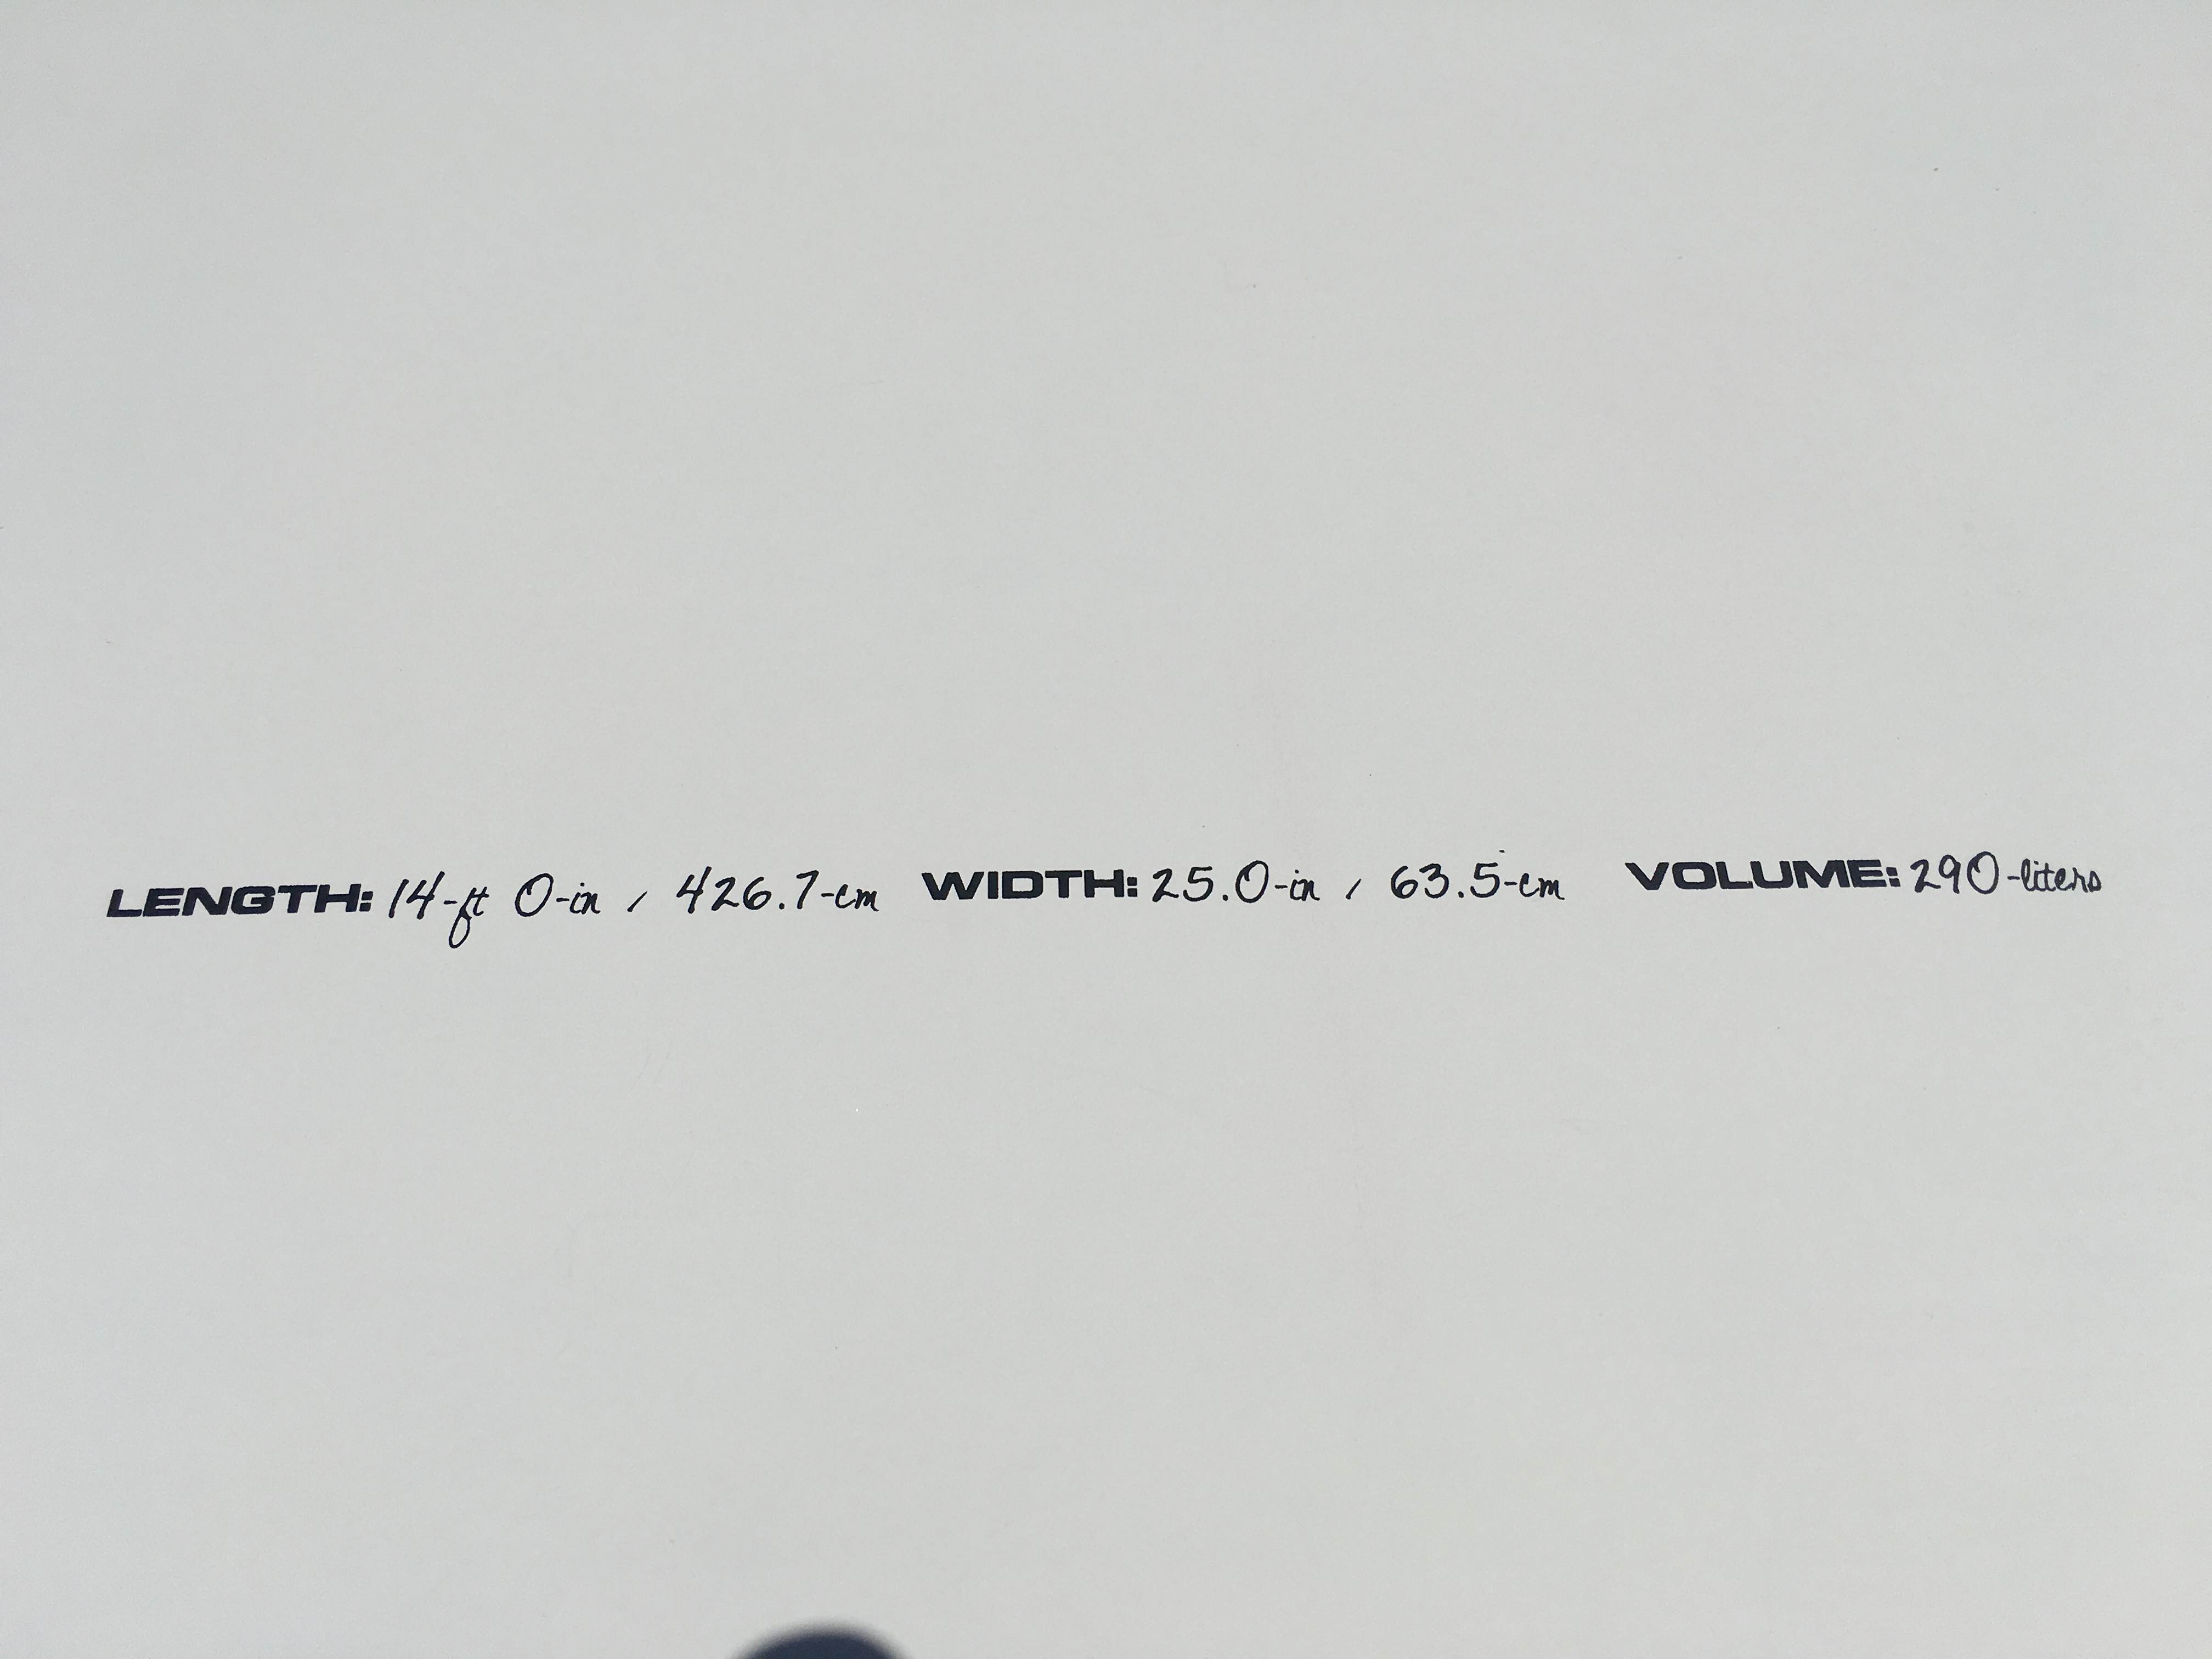 LENGTH: 14-ft 0-in / 426.7-cm WIDTH: 25.0-in / 63.5-cm VOLUME: 290-liters